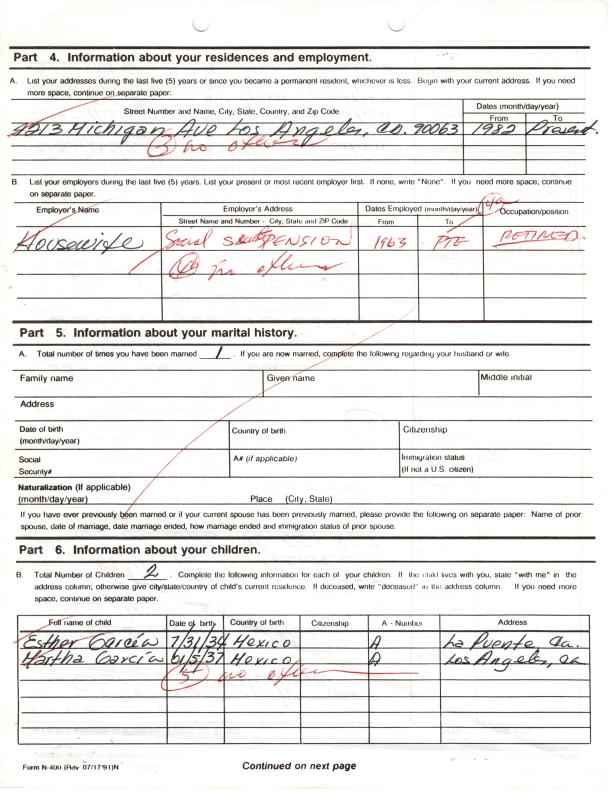 Part 4. Information about your residences and employment.
A. List your addresses during the last five (5) years or since you became a permanent resident, whichever is less. Begin with your current address. If you need
more space, continue on separate paper:
Street Number and Name, City, State, Country, and Zip Code
Dates (month/day/year)
From To
4213 Michigan Ave Los Angeles, Ca. 90063 1982 Present.
3 no others
B. List your employers during the last five (5) years. List your present or most recent employer first. If none, write "None". If you need more space, continue
on separate paper.
Employer's Name Employer's Address Dates Employed (month/day/year) Occupation/position
Street Name and Number - City, State and ZIP Code From To
Housewife Social PENSION 1963 PTE RETIRED
4 no others
Part 5. Information about your marital history.
A. Total number of times you have been married 1 . If you are now married, complete the following regarding your husband or wife.
Family name Given name Middle initial
Address
Date of birth
(month/day/year)
Country of birth Citizenship
Social
Security#
A# (if applicable)
Immigration status
(If not a U.S. citizen)
Naturalization (If applicable)
(month/day/year) Place (City, State)
If you have ever previously been married or if your current spouse has been previously married, please provide the following on separate paper: Name of prior
spouse, date of marriage, date marriage ended, how marriage ended and immigration status of prior spouse.
Part 6. Information about your children.
B. Total Number of Children 2 . Complete the following information for each of your children. If the child lives with you, state "with me" in the
address column; otherwise give city/state/country of child's current residence. If deceased, write "deceased" in the address column. If you need more
space, continue on separate paper.
Full name of child Date of birth Country of birth Citizenship A - Number Address
Esther García 7/31/34 Mexico A La Puente Ca.
Martha García 01/5/37 Mexico A Los Angeles, Ca
5 no others
Form N-400 (Rev. 07/17/91)N
Continued on next page